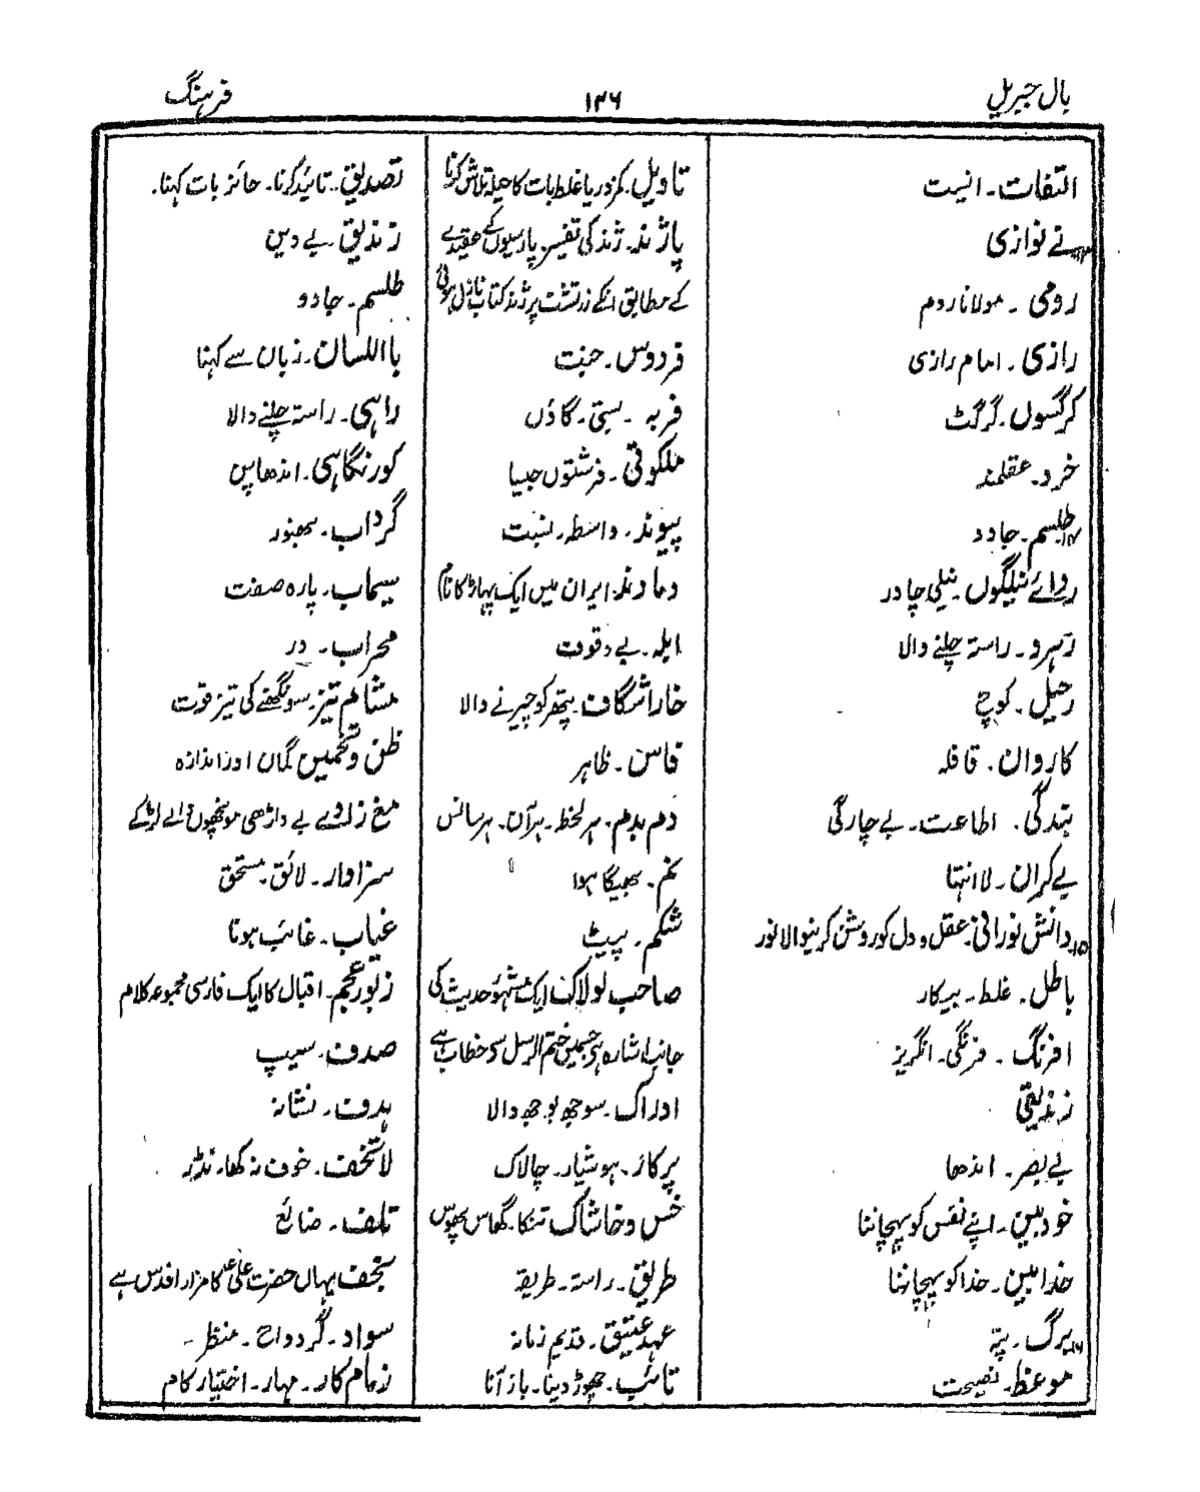 بال جبریل
۱۲۶
فرہنگ
التفات۔ انسیت
۱۳۔نے نوازی
رومی ۔ مولانا روم
رازی ۔ امام رازی
کرگسوں۔ گرگٹ
خرد۔ عقلمند
۱۴۔طلسم۔ جادو
ردائے نیلگوں۔ نیلی چادر
رہرو۔ راستہ چلنے والا
رحیل۔ کوچ
کاروان۔ قافلہ
بندگی۔ اطاعت۔ بے چارگی
بے کران۔ لا انتہا
۱۵۔دانش نورانی۔ عقل و دل کو روشن کرنیوالا نور
باطل۔ غلط۔ بیکار
افرنگ ۔ فرنگی۔ انگریز
زندیقی
بے بصر۔ اندھا
خود بین۔ اپنے نفس کو پہچاننا
خدا بین۔ خدا کو پہچاننا
۱۶۔برگ۔ پتہ
موعظ۔ نصیحت
تاویل۔ کمزور یا غلط بات کا حیلہ تلاش کرنا
پاژند۔ ژند کی تفسیر پارسیوں کے عقیدے
کے مطابق انکے زرتشت پر ژند کتاب نازل ہوئی
فردوس۔ جنت
قریہ ۔ بستی۔ گاؤں
ملکوتی۔ فرشتوں جیسا
پیوند۔ واسطہ۔ نسبت
دماوند۔ ایران میں ایک پہاڑ کا نام
ابلہ۔ بے وقوف
خارا شگاف۔ پتھر کو چیرنے والا
فاس۔ ظاہر
دم بدم۔ ہر لحظہ۔ ہر آن۔ ہر سانس
نم۔ بھیگا ہوا
شکم۔ پیٹ
صاحب لولاک۔ ایک مشہور حدیث کی
جانب اشارہ ہے جسمیں ختم الرسل سے خطاب ہے
ادراک۔ سوجھ بوجھ والا
پرکار۔ ہوشیار۔ چالاک
خس و خاشاک تنکا۔ گھاس پھوس
طریق۔ راستہ۔ طریقہ
عہد عتیق۔ قدیم زمانہ
تائب۔ چھوڑ دینا۔ باز آنا
تصدیق۔ تائید کرنا۔ جائز بات کہنا۔
زندیق۔ بے دین
طلسم۔ جادو
بااللسان۔ زبان سے کہنا
راہی۔ راستہ چلنے والا
کور نگاہی۔ اندھاپن
گرداب۔ بھنور
سیماب۔ پارہ صفت
محراب۔ در
مشام تیز۔ سونگھنے کی تیز قوت
ظن و تخمین گمان اور اندازہ
مغ زادے بے داڑھی مونچھوں والے لڑکے
سزاوار۔ لائق۔ مستحق
غیاب۔ غائب ہونا
زبور عجم۔ اقبال کا ایک فارسی مجموعہ کلام
صدف۔ سیپ
ہدف۔ نشانہ
لاتخف۔ خوف نہ کھا۔ نڈر
تلف۔ ضائع
نجف یہاں حضرت علیؑ کا مزار اقدس ہے
سواد۔ گرد و اح۔ منظر۔
زمام کار۔ مہار۔ اختیار کام